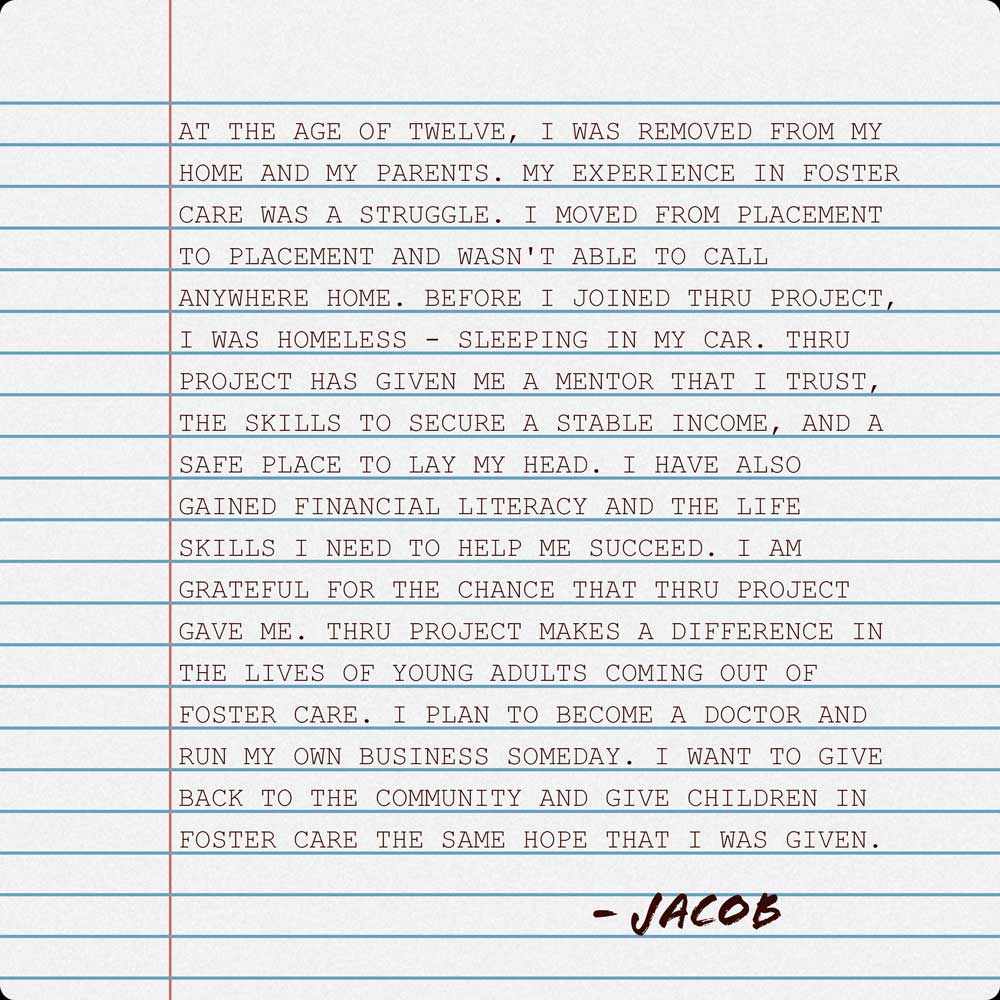 AT THE AGE OF TWELVE, I WAS REMOVED FROM MY
HOME AND MY PARENTS. MY EXPERIENCE IN FOSTER
CARE WAS A STRUGGLE. I MOVED FROM PLACEMENT
TO PLACEMENT AND WASN'T ABLE TO CALL
ANYWHERE HOME. BEFORE I JOINED THRU PROJECT,
I WAS HOMELESS - SLEEPING IN MY CAR. THRU
PROJECT HAS GIVEN ME A MENTOR THAT I TRUST,
THE SKILLS TO SECURE A STABLE INCOME, AND A
SAFE PLACE TO LAY MY HEAD. I HAVE ALSO
GAINED FINANCIAL LITERACY AND THE LIFE
SKILLS I NEED TO HELP ME SUCCEED. I AM
GRATEFUL FOR THE CHANCE THAT THRU PROJECT
GAVE ME. THRU PROJECT MAKES A DIFFERENCE IN
THE LIVES OF YOUNG ADULTS COMING OUT OF
FOSTER CARE. I PLAN TO BECOME A DOCTOR AND
RUN MY OWN BUSINESS SOMEDAY. I WANT TO GIVE
BACK TO THE COMMUNITY AND GIVE CHILDREN IN
FOSTER CARE THE SAME HOPE THAT I WAS GIVEN.
- JACOB